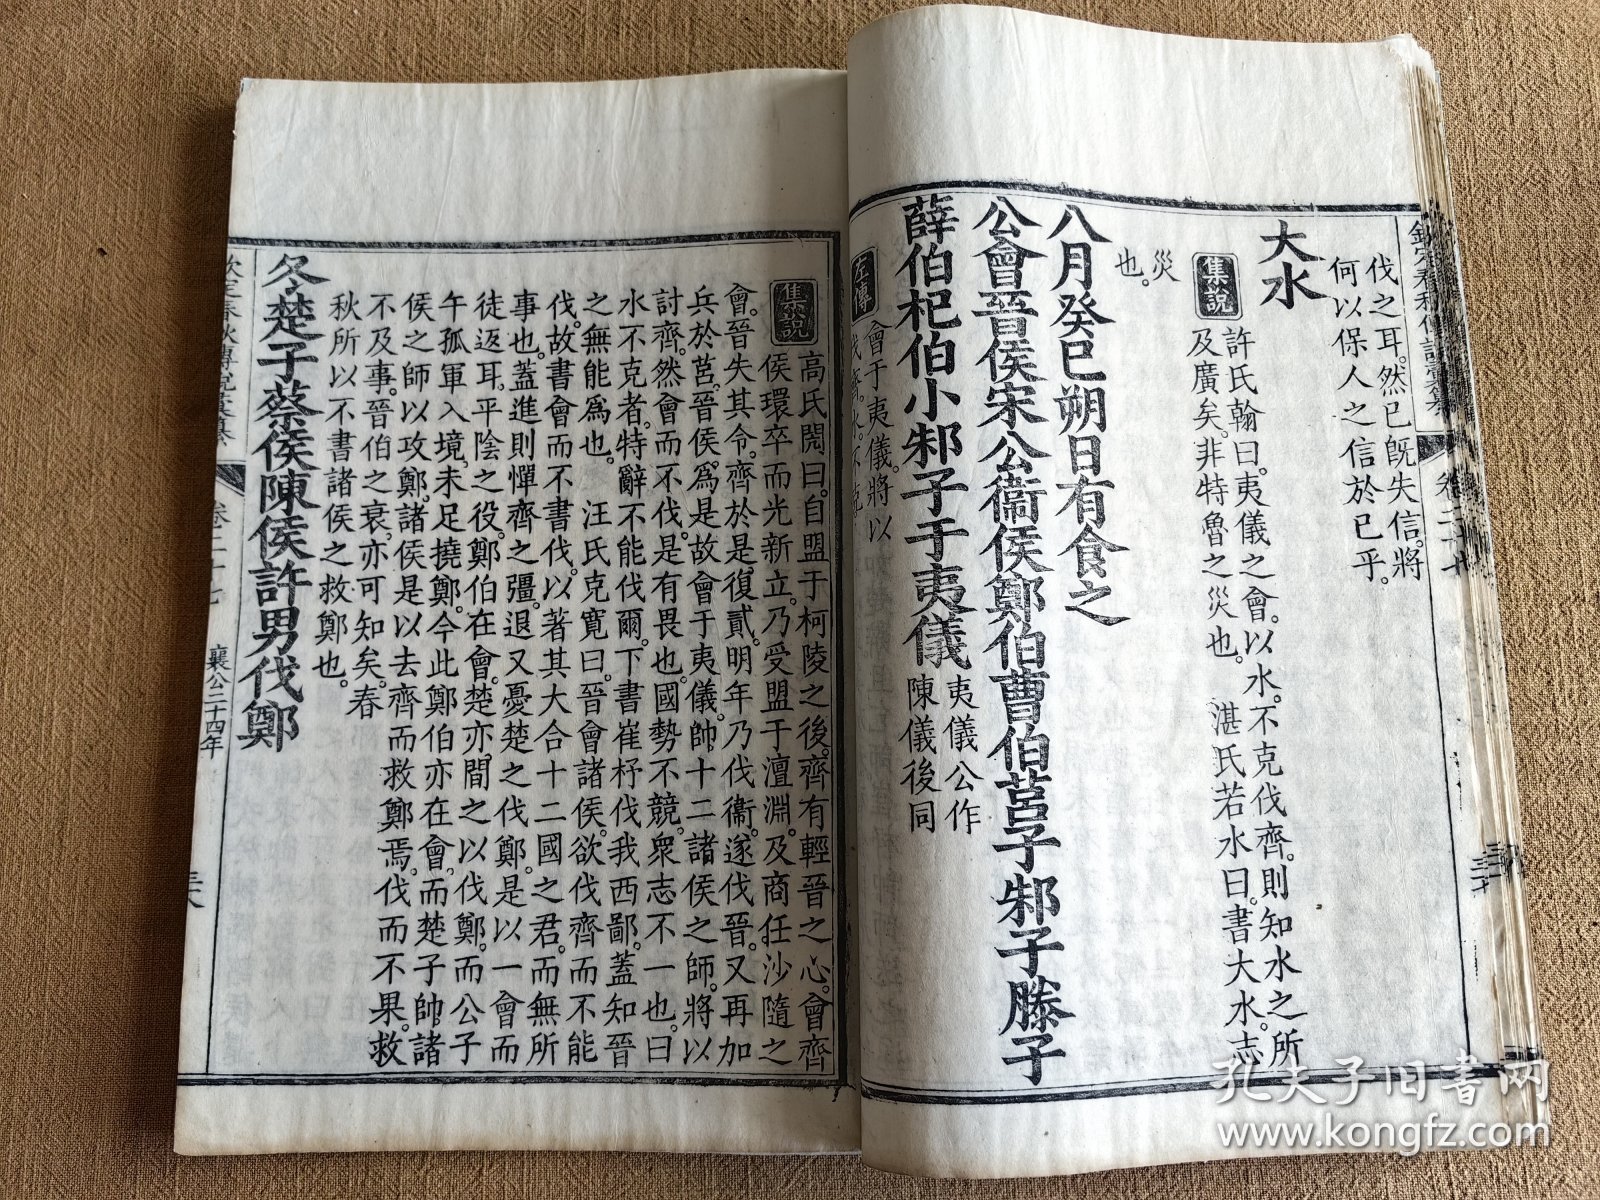 伐之耳。然已既失信。將
何以保人之信於已乎。
大水
集說
許氏翰曰。夷儀之會。以水。不克伐齊。則知水之所
及廣矣。非特魯之災也。 湛氏若水曰。書大水。志
災
也。
八月癸巳朔日有食之
公會晉侯宋公衞侯鄭伯曹伯莒子邾子滕子
薛伯杞伯小邾子于夷儀
夷儀公作
陳儀後同
左傳
會于夷儀。將以
伐齊。水。不克。
集說
高氏閌曰。自盟于柯陵之後。齊有輕晉之心。會齊
侯環卒而光新立。乃受盟于澶淵。及商任沙隨之
會。晉失其令。齊於是。復貳。明年乃伐衞。遂伐晉。又再加
兵於莒。晉侯。爲是故會于夷儀。帥十二諸侯之師。將以
討齊。然會而不伐。是有畏也。國勢不競。衆志不一也。曰
水不克者。特辭不能伐爾。下書崔杼伐我西鄙。蓋知晉
之無能爲也。 汪氏克寬曰。晉會諸侯。欲伐齊而不能
伐。故書會而不書伐。以著其大合十二國之君。而無所
事也。蓋進則憚齊之彊。退又憂楚之伐鄭。是以一會而
徒返耳。平陰之役。鄭伯在會。楚亦間之以伐鄭。而公子
午孤軍入境。未足撓鄭。今此鄭伯亦在會。而楚子帥諸
侯之師以攻鄭。諸侯是以去齊而救鄭焉。伐而不果。救
不及事。晉伯之衰。亦可知矣。春
秋所以不書諸侯之救鄭也。
冬楚子蔡侯陳侯許男伐鄭
欽定春秋傳說彙纂
卷二十七
襄公二十四年
孔夫子旧书网
www.kongfz.com